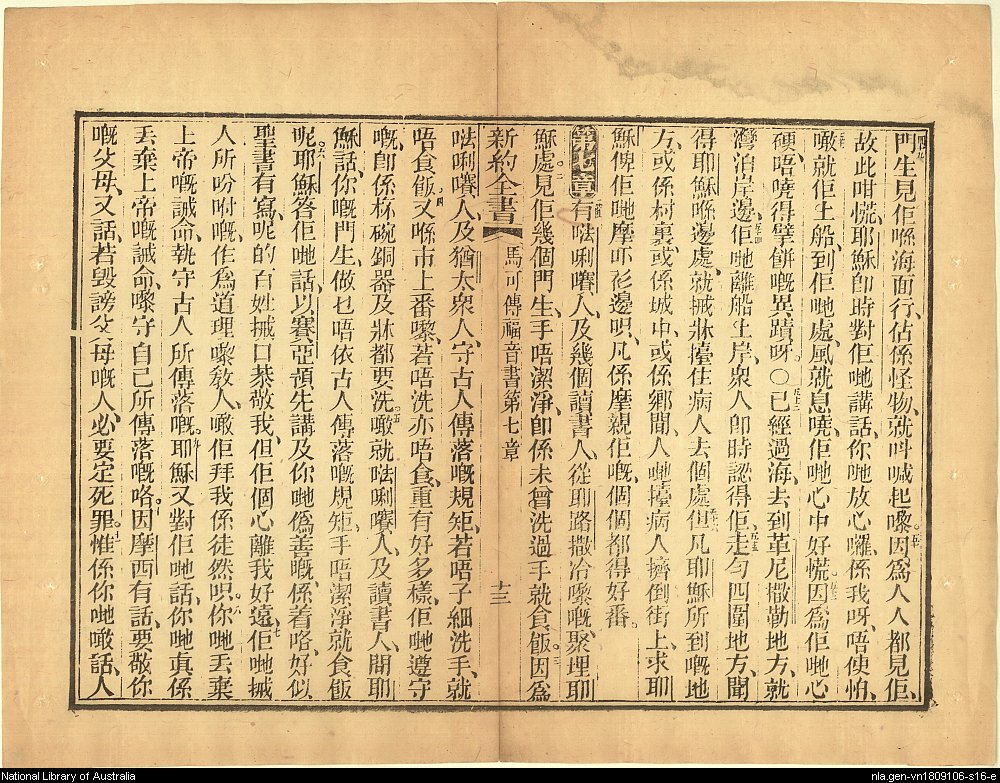 門生見佢喺海面行、估係怪物、就叫喊起嚟。因爲人人都見佢、
故此咁慌、耶穌卽時對佢哋講話、你哋放心囉、係我呀、唔使怕、
噉就佢上船、到佢哋處、風就息嘵、佢哋心中好慌、因爲佢哋心
硬、唔曉得擘餅嘅異蹟呀。〇已經過海、去到革尼撒勒地方、就
灣泊岸邊、佢哋離船上岸、衆人卽時認得佢、走勻四圍地方、聞
得耶穌喺邊處、就搣牀擡住病人去個處、但凡耶穌所到嘅地
方、或係村裏、或係城中、或係鄉間、人哋擡病人擠倒街上、求耶
穌俾佢哋摩吓衫邊呮、凡係摩親佢嘅、個個都得好番。
第七章 有呿唎賽人、及幾個讀書人、從耶路撒冷嚟嘅、聚埋耶
穌處、見佢幾個門生、手唔潔淨、卽係未曾洗過手、就食飯。因爲
新約全書 馬可傳福音書第七章 十三
呿唎賽人、及猶太衆人、守古人傳落嘅規矩、若唔子細洗手、就
唔食飯。又喺市上番嚟、若唔洗、亦唔食、重有好多樣、佢哋遵守
嘅、卽係杯碗銅器及牀都要洗。噉就呿唎賽人、及讀書人、問耶
穌話、你嘅門生、做乜唔依古人傳落嘅規矩、手唔潔淨就食飯
呢。耶穌答佢哋話、以賽亞預先講及你哋僞善嘅、係着咯、好似
聖書有寫、呢的百姓搣口恭敬我、但佢個心離我好遠、佢哋搣
人所吩咐嘅、作爲道理嚟教人、噉佢拜我係徒然呮。你哋丟棄
上帝嘅誡命、執守古人所傳落嘅。耶穌又對佢哋話、你哋眞係
丟棄上帝嘅誡命、嚟守自己所傳落嘅咯、因摩西有話、要敬你
嘅父母、又話、若毀謗父母嘅人、必要定死罪。惟係你哋噉話、人
National Library of Australia
nla.gen-vn1809106-s16-e